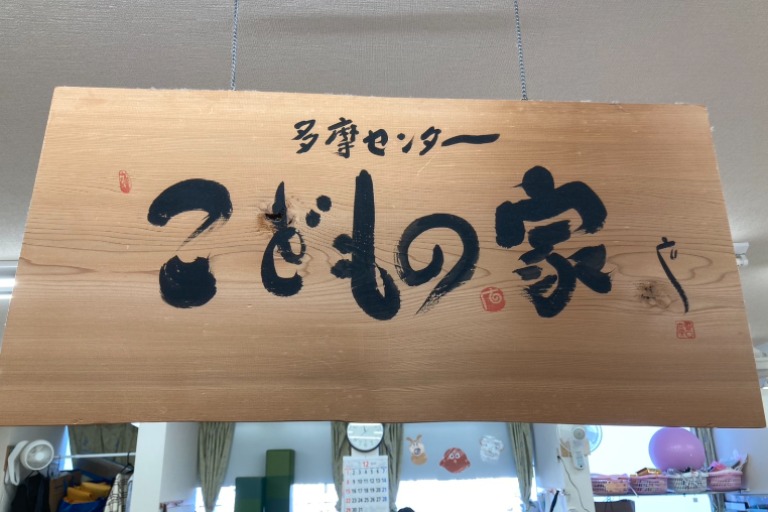 多摩センター
こどもの家